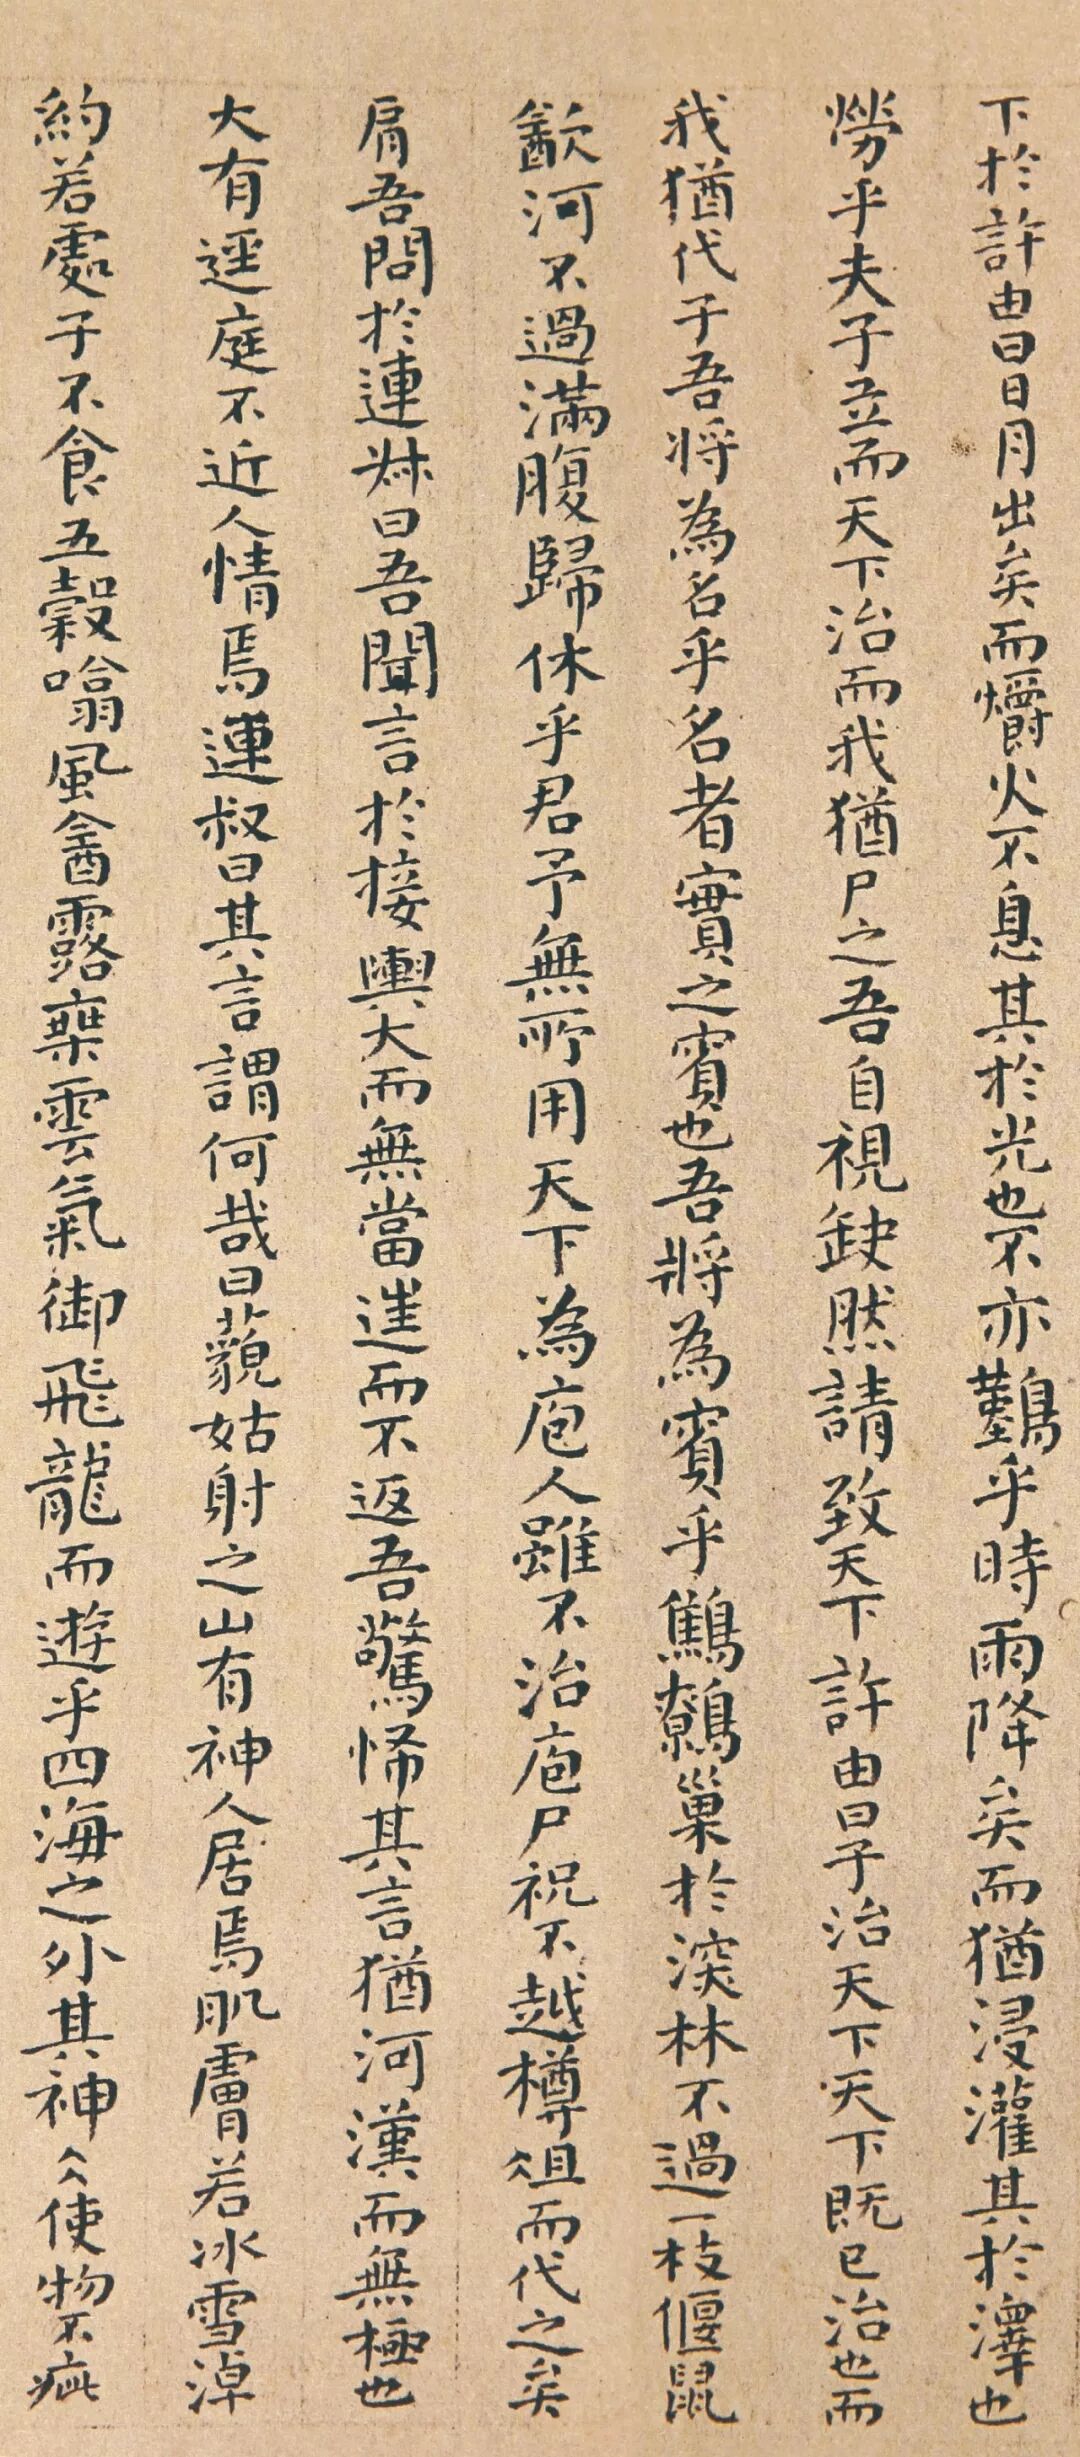 下於許由曰日月出矣而爝火不息其於光也不亦難乎時雨降矣而猶浸灌其於澤也
勞乎夫子立而天下治而我猶尸之吾自視缺然請致天下許由曰子治天下天下既已治也而
我猶代子吾將為名乎名者實之賓也吾將為賓乎鷦鷯巢於深林不過一枝偃鼠
㱃河不過滿腹歸休乎君予無所用天下為庖人雖不治庖尸祝不越樽俎而代之矣
肩吾問於連叔曰吾聞言於接輿大而無當往而不返吾驚怖其言猶河漢而無極也
大有逕庭不近人情焉連叔曰其言謂何哉曰藐姑射之山有神人居焉肌膚若冰雪淖
約若處子不食五穀噏風酓露椉雲氣御飛龍而遊乎四海之外其神仌使物不疵